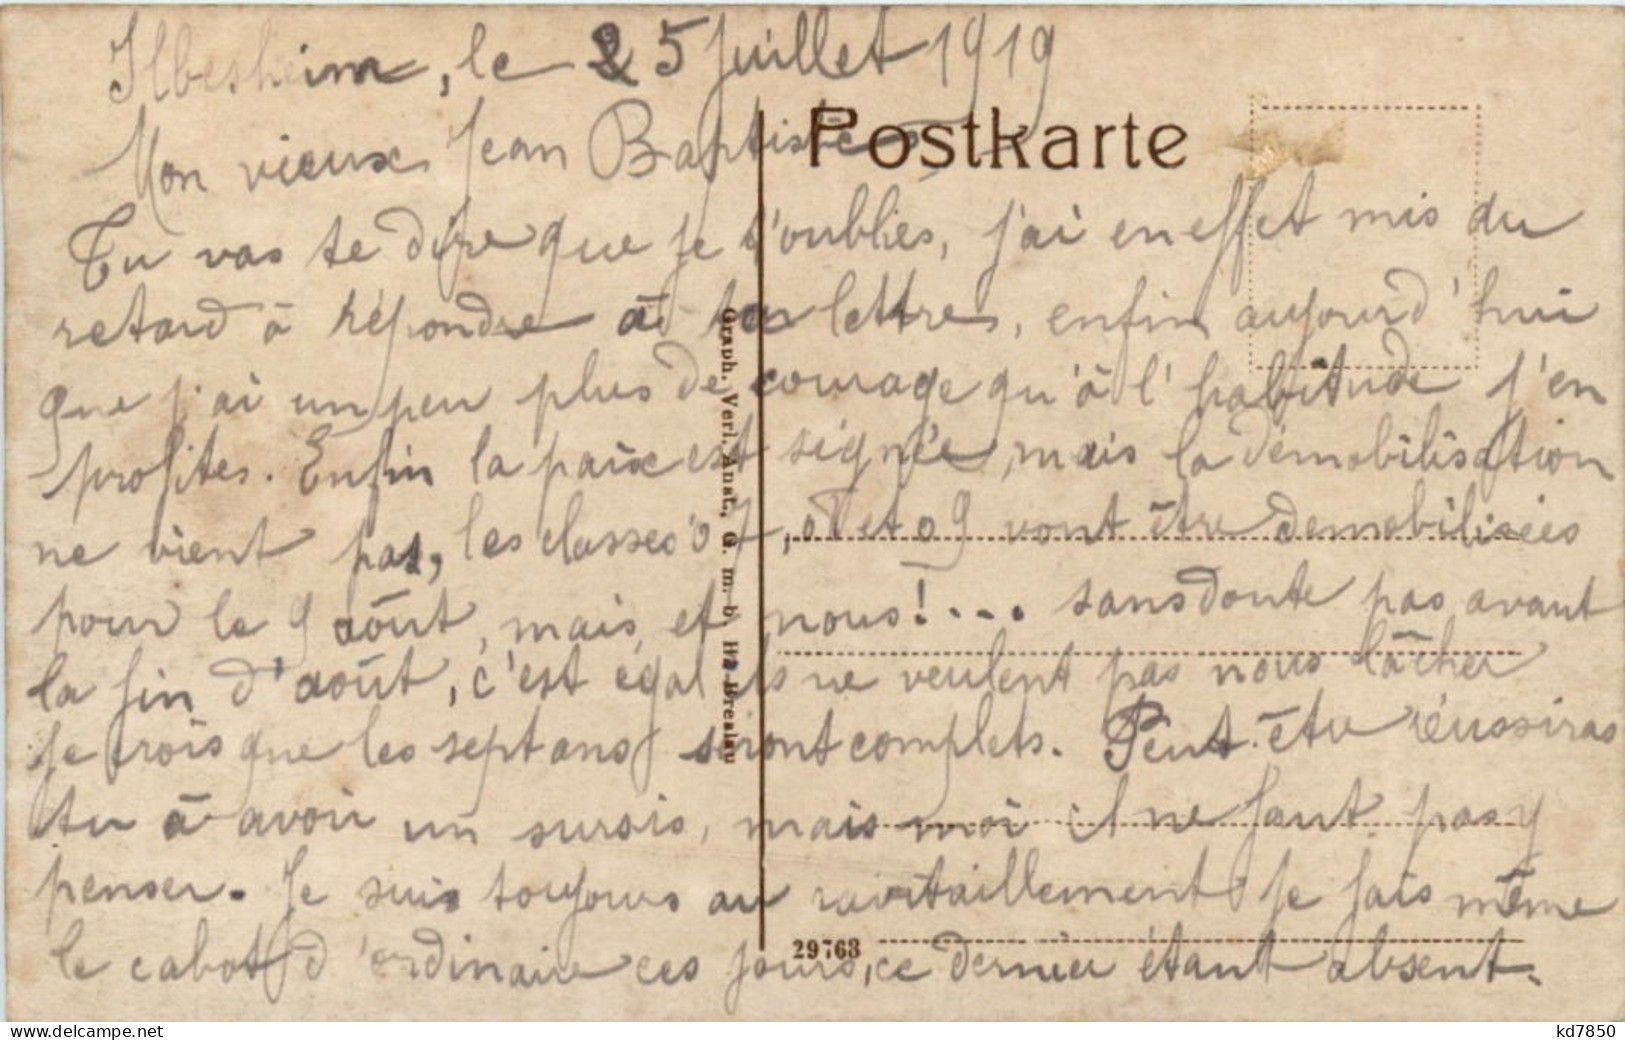 Ilbesheim, le 25 Juillet 1919
Postkarte
Mon vieux Jean Baptiste
Tu vas te dire que je t'oublies, j'ai en effet mis du
retard à répondre à ta lettre, enfin aujourd'hui
que j'ai un peu plus de courage qu'à l'habitude j'en
profites. Enfin la paix est signée, mais la démobilisation
ne vient pas, les classes 07, 08 et 09 vont être demobilisées
pour le 9 août, mais et nous!... sans doute pas avant
la fin d'août, c'est égal ils ne veulent pas nous lâcher
je crois que les sept ans seront complets. Peut-être réussiras
tu à avoir un sursis, mais moi il ne faut pas y
penser. Je suis toujours au ravitaillement je fais même
le cabot d'ordinaire ces jours, ce dernier étant absent.
Graph. Verl. Anst., G. m. b. H., Breslau
29763
www.delcampe.net
kd7850